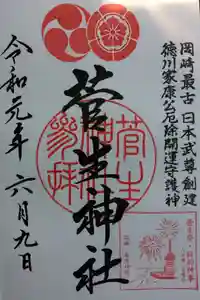 岡崎最古 日本武尊創建
徳川家康公厄除開運守護神
菅生神社
令和元年 六月九日